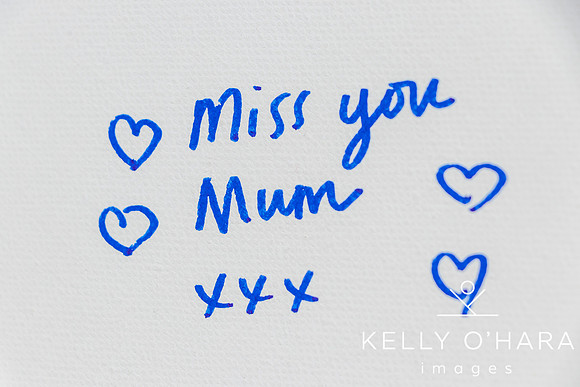 Miss you
Mum
xxx
KELLY O'HARA
images